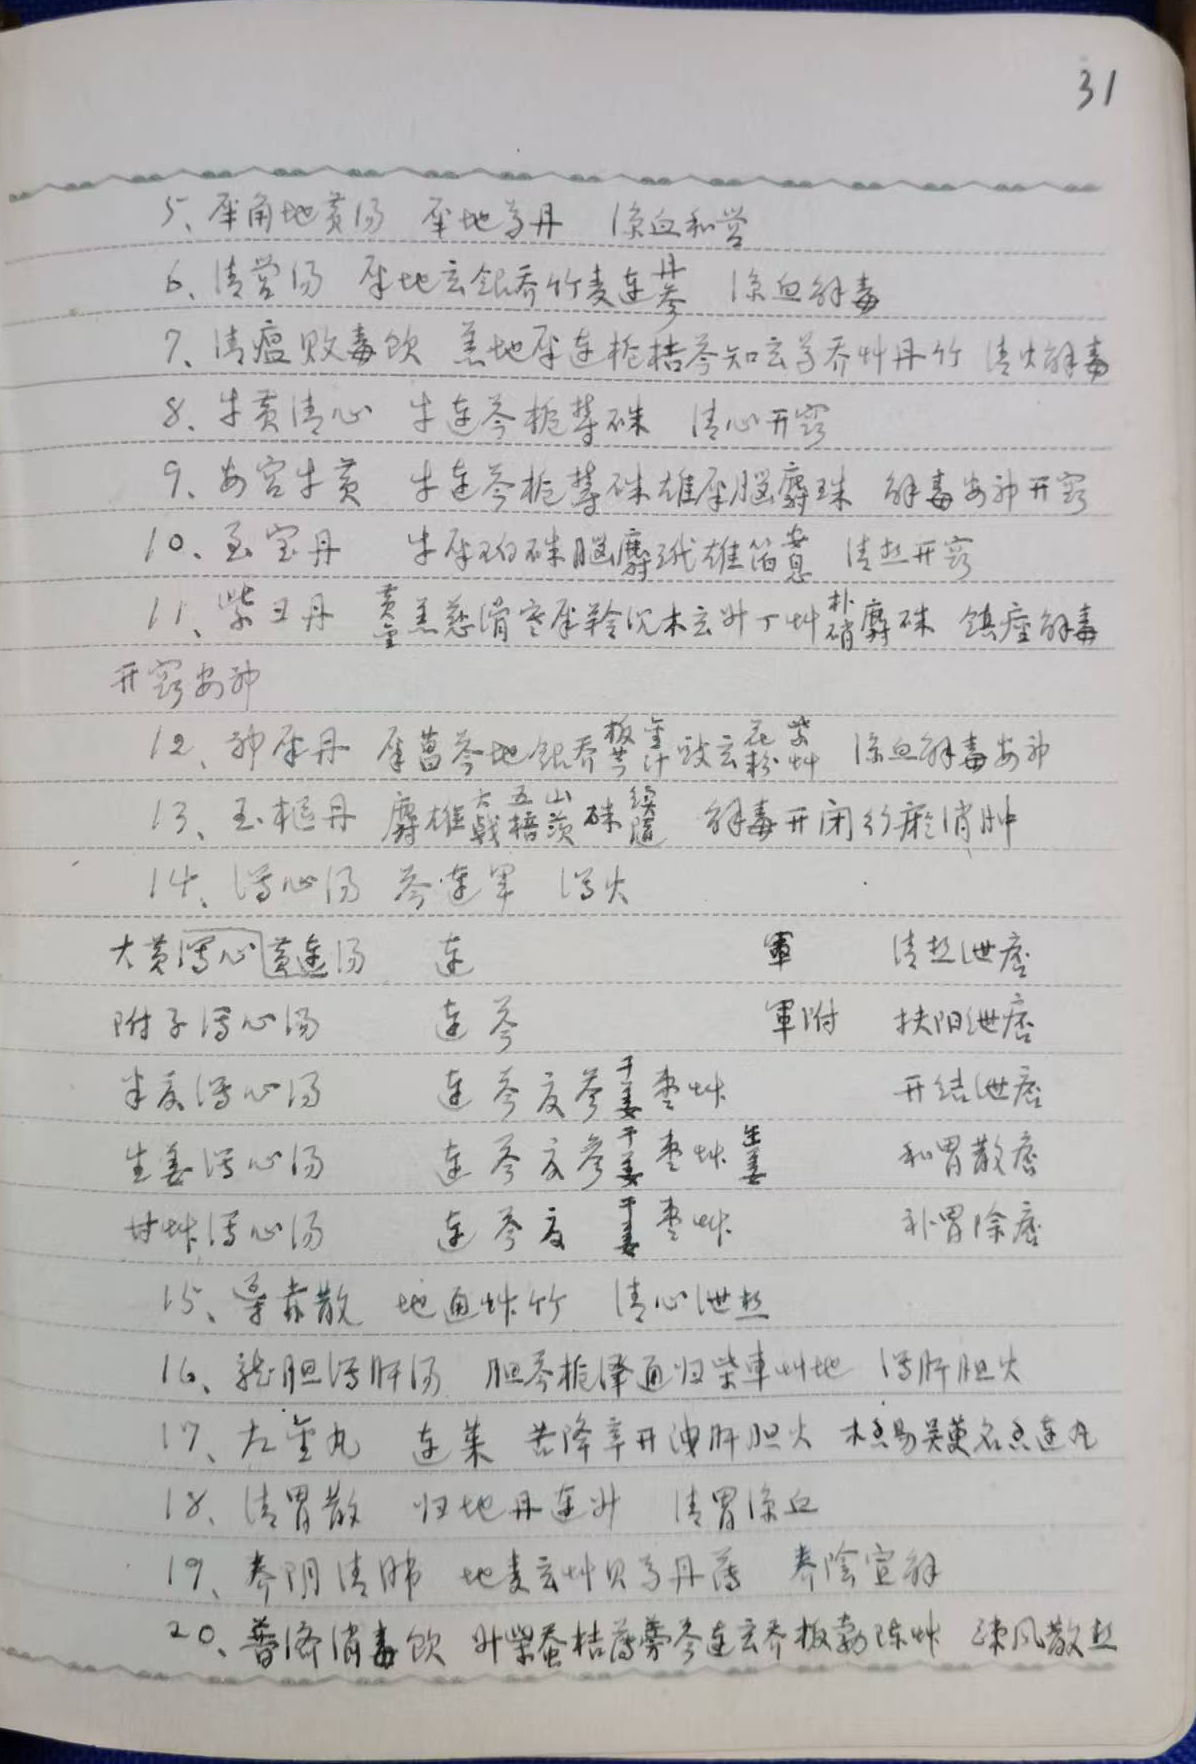 31
5、犀角地黄汤 犀地芍丹 涼血和营
6、清营汤 犀地玄銀乔竹麦连丹参 涼血解毒
7、清瘟败毒饮 羔地犀连栀桔芩知玄芍乔艸丹竹 清火解毒
8、牛黄清心 牛连芩栀郁硃 清心开窍
9、安宫牛黄 牛连芩栀郁硃雄犀脑麝珠 解毒安神开窍
10、至宝丹 牛犀珀硃脑麝玳雄箔安息 清热开窍
11、紫丑丹 黄金羔慈滑寒犀羚沉木玄升丁艸朴硝麝硃 鎮痙解毒
开窍安神
12、神犀丹 犀菖芩地銀乔板兰金汁豉玄花粉紫艸 涼血解毒安神
13、玉枢丹 麝雄大戟五棓山茨硃续随 解毒开闭行瘀消肿
14、泻心汤 芩连军 泻火
大黄泻心黄连汤 连 軍 清热泄痞
附子泻心汤 连芩 軍附 扶阳泄痞
半夏泻心汤 连芩夏参干姜枣艸 开结泄痞
生姜泻心汤 连芩夏参干姜枣艸生姜 和胃散痞
甘艸泻心汤 连芩夏干姜枣艸 补胃除痞
15、导赤散 地通艸竹 清心泄热
16、龙胆泻肝汤 胆芩栀泽通归柴車艸地 泻肝胆火
17、左金丸 连萸 苦降辛开泄肝胆火 木香易吴萸名香连丸
18、清胃散 归地丹连升 清胃涼血
19、养阴清肺 地麦玄艸贝芍丹薄 养陰宣解
20、普济消毒饮 升柴蚕桔薄蒡芩连玄乔板勃陈艸 疎风散热